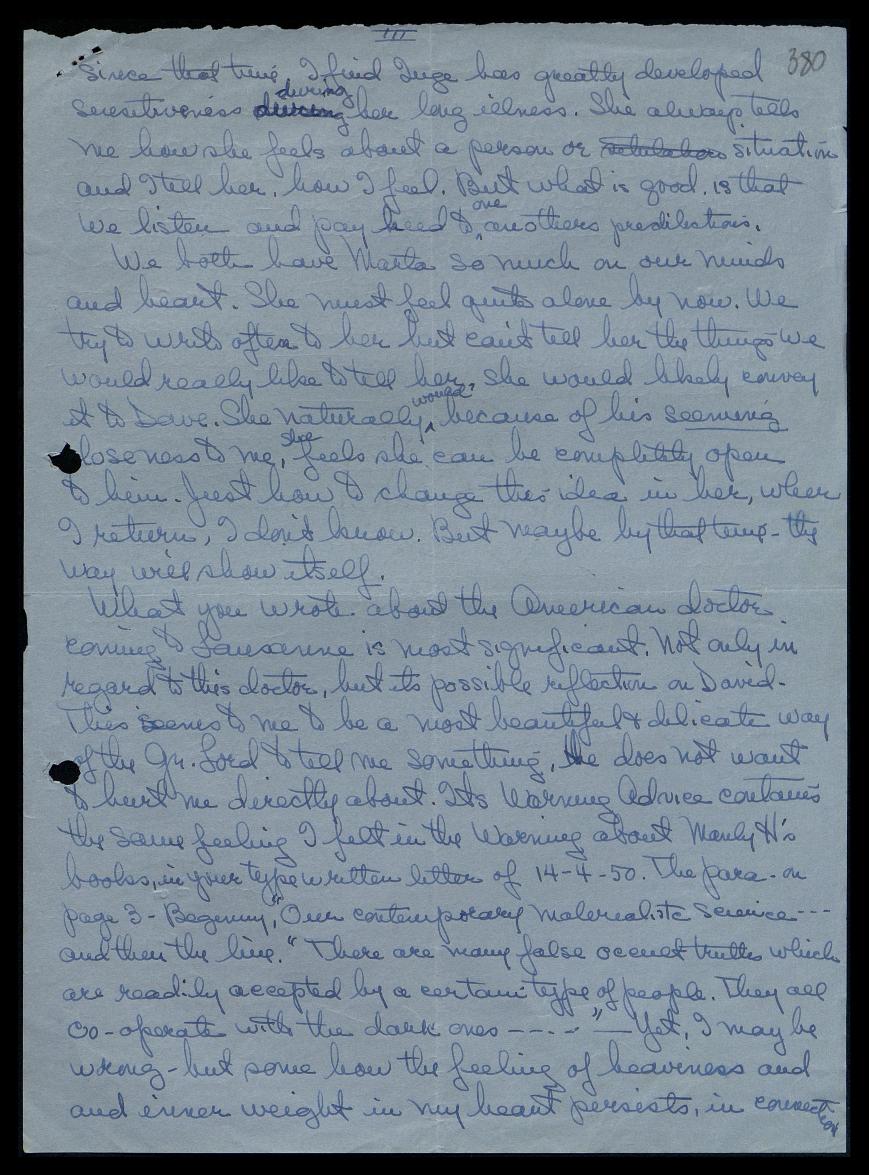 III
380
since that time, I find Inge has greatly developed
sensitiveness during her long illness. She always tells
me how she feels about a person or situation
and I tell her, how I feel. But what is good, is that
we listen and pay heed to one anothers predilections.
We both have Marta so much on our minds
and heart. She must feel quite alone by now. We
try to write often to her but can't tell her the things we
would really like to tell her, she would likely convey
it to Dave. She naturally would, because of his seeming
closeness to me, she feels she can be completely open
to him. Just how to change this idea in her, when
I return, I don't know. But maybe by that time - the
way will show itself.
What you wrote about the American doctor
coming to Lausanne is most significant. Not only in
regard to this doctor, but its possible reflection on David.
This seems to me to be a most beautiful & delicate way
of the Gr. Lord to tell me something, He does not want
to hurt me directly about. Its Warning Advice contains
the same feeling I felt in the Warning about Manly H's
books, in your typewritten letter of 14-4-50. The para. on
page 3 - Beginning, "Our contemporary materialistic science ---
and then the line. "There are many false occult truths which
are readily accepted by a certain type of people. They all
co-operate with the dark ones -----" — Yet, I may be
wrong - but some how the feeling of heaviness and
and inner weight in my heart persists, in connection